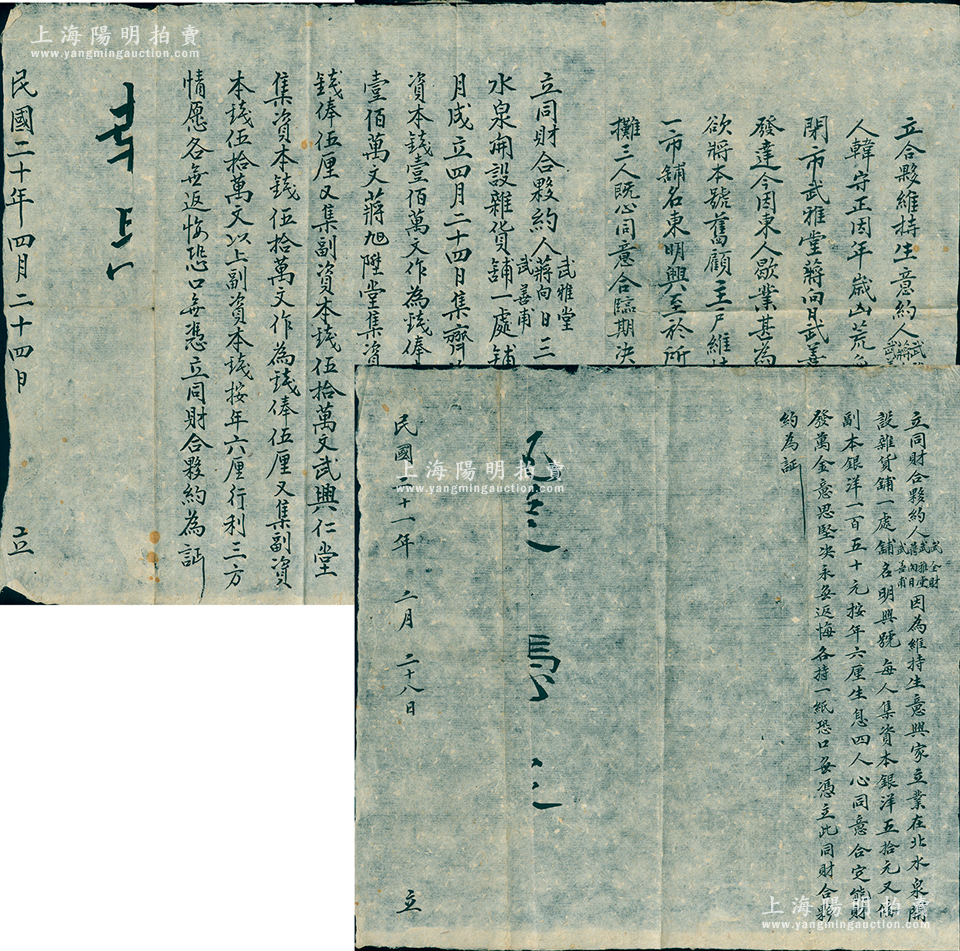 上海陽明拍賣
www.yangmingauction.com
上海陽明拍賣
www.yangmingauction.com
立合夥維持生意約人
人韓守正因年歲凶荒
閉市武雅堂蔣向日武善
發達今因東人歇業甚為
欲將本號舊顧主戶維持
一市舖名東明興至於所
攤三人既心同意合臨期決
立同財合夥約人武雅堂蔣向日武善甫三
水泉開設雜貨舖一處舖
月成立四月二十四日集齊
資本錢壹佰萬文作為錢俸
壹佰萬文蔣旭陞堂集資
錢俸伍厘又集副資本錢伍拾萬文武興仁堂
集資本錢伍拾萬文作為錢俸伍厘又集副資
本錢伍拾萬文以上副資本錢按年六厘行利三方
情愿各無返悔恐口無憑立同財合夥約為証
民國二十年四月二十四日 立
立同財合夥約人武全財武雅堂蔣向日武善甫因為維持生意興家立業在北水泉開
設雜貨舖一處舖名明興號每人集資本銀洋五拾元又
副本銀洋一百五十元按年六厘生息四人心同意合定能財
發萬金意思堅決永無返悔各持一紙恐口無憑立此同財合夥
約為証
民國二十一年 二月 二十八日 立
上海陽明拍賣
www.yangmingauction.com
上海陽明拍賣
www.yangmingauction.com